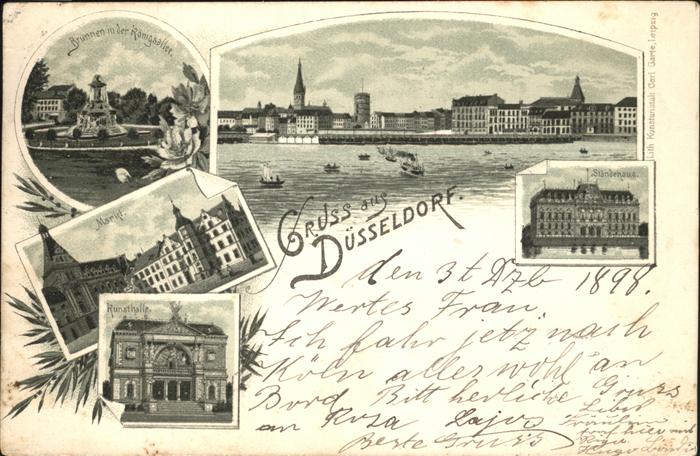 Brunnen in der Königsallee.
Lith. Kunstanstalt Carl Garte, Leipzig
Ständehaus.
Markt.
Kunsthalle.
GRUSS aus
DÜSSELDORF.
den 3t Dzb 1898.
Wertes Frau
Ich fahr jetz nach
Köln alles wohl an
Bord Bitt herliche Gruss
an Rosa Lajos
Beste Gruss